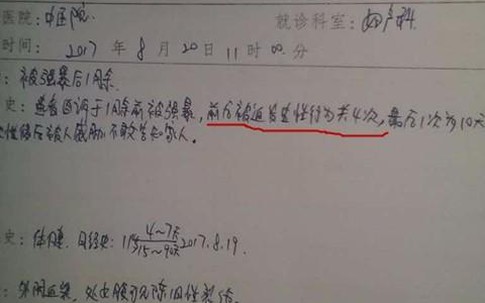 医院：中医院 就诊科室：妇产科
时间： 2017 年 8 月 20 日 11 时 00 分
：被强暴后1月余
史：患者自诉于1月余前被强暴，前后被迫发生性行为共4次，最后1次为10天
性侵后被人威胁不敢告知家人。
史：体健 月经史：11岁 4~7天/15~90天 2017.8.19.
：外阴正常，处女膜可见陈旧性裂伤。